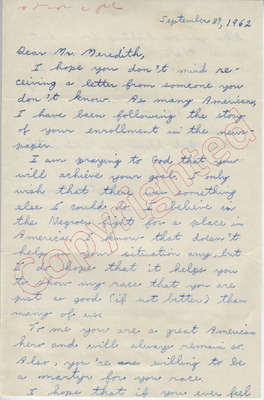 September 29, 1962
Dear Mr. Meredith,
I hope you don't mind re-
ceiving a letter from someone you
don't know. As many Americans,
I have been following the story
of your enrollment in the news-
paper.
I am praying to God that you
will achieve your goal. I only
wish that there was something
else I could do. I believe in
the Negroes fight for a place in
America. I know that doesn't
help your situation any, but
I do hope that it helps you
to show my race that you are
just as good (if not better) than
many of us.
To me you are a great American
hero and will always remain so.
Also, you're willing to be
a martyr for your race.
I hope that if you ever feel
copyrighted